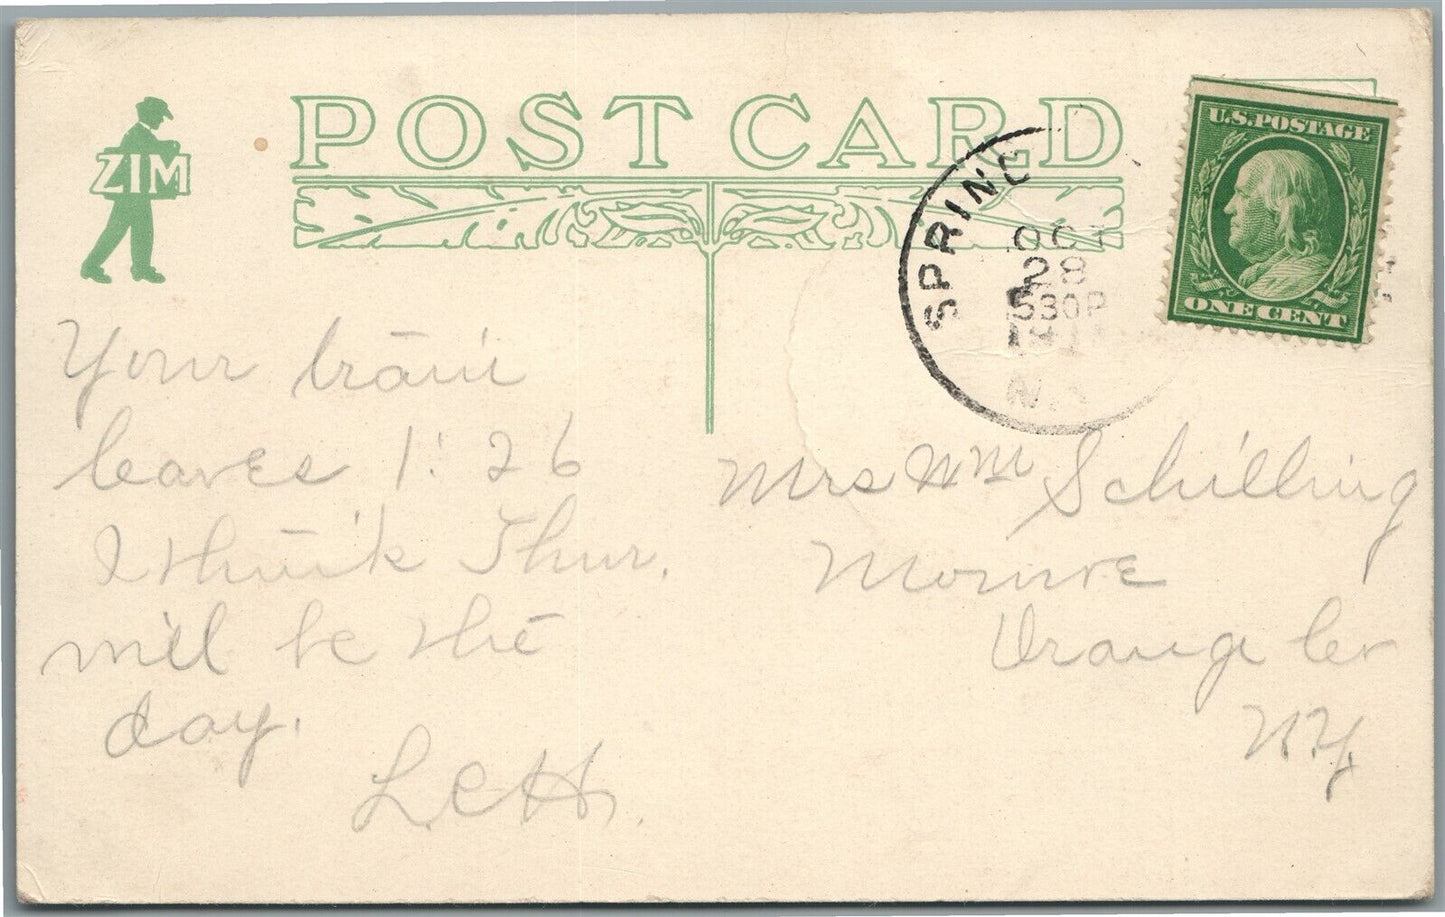 ZIM
POST CARD
U.S. POSTAGE
ONE CENT
SPRING
OCT
28
530P
191
N.
Your train
leaves 1:26
I think Thur.
will be the
day.
L.C.H.
Mrs Wm Schilling
Monroe
Orange Co
N.Y.